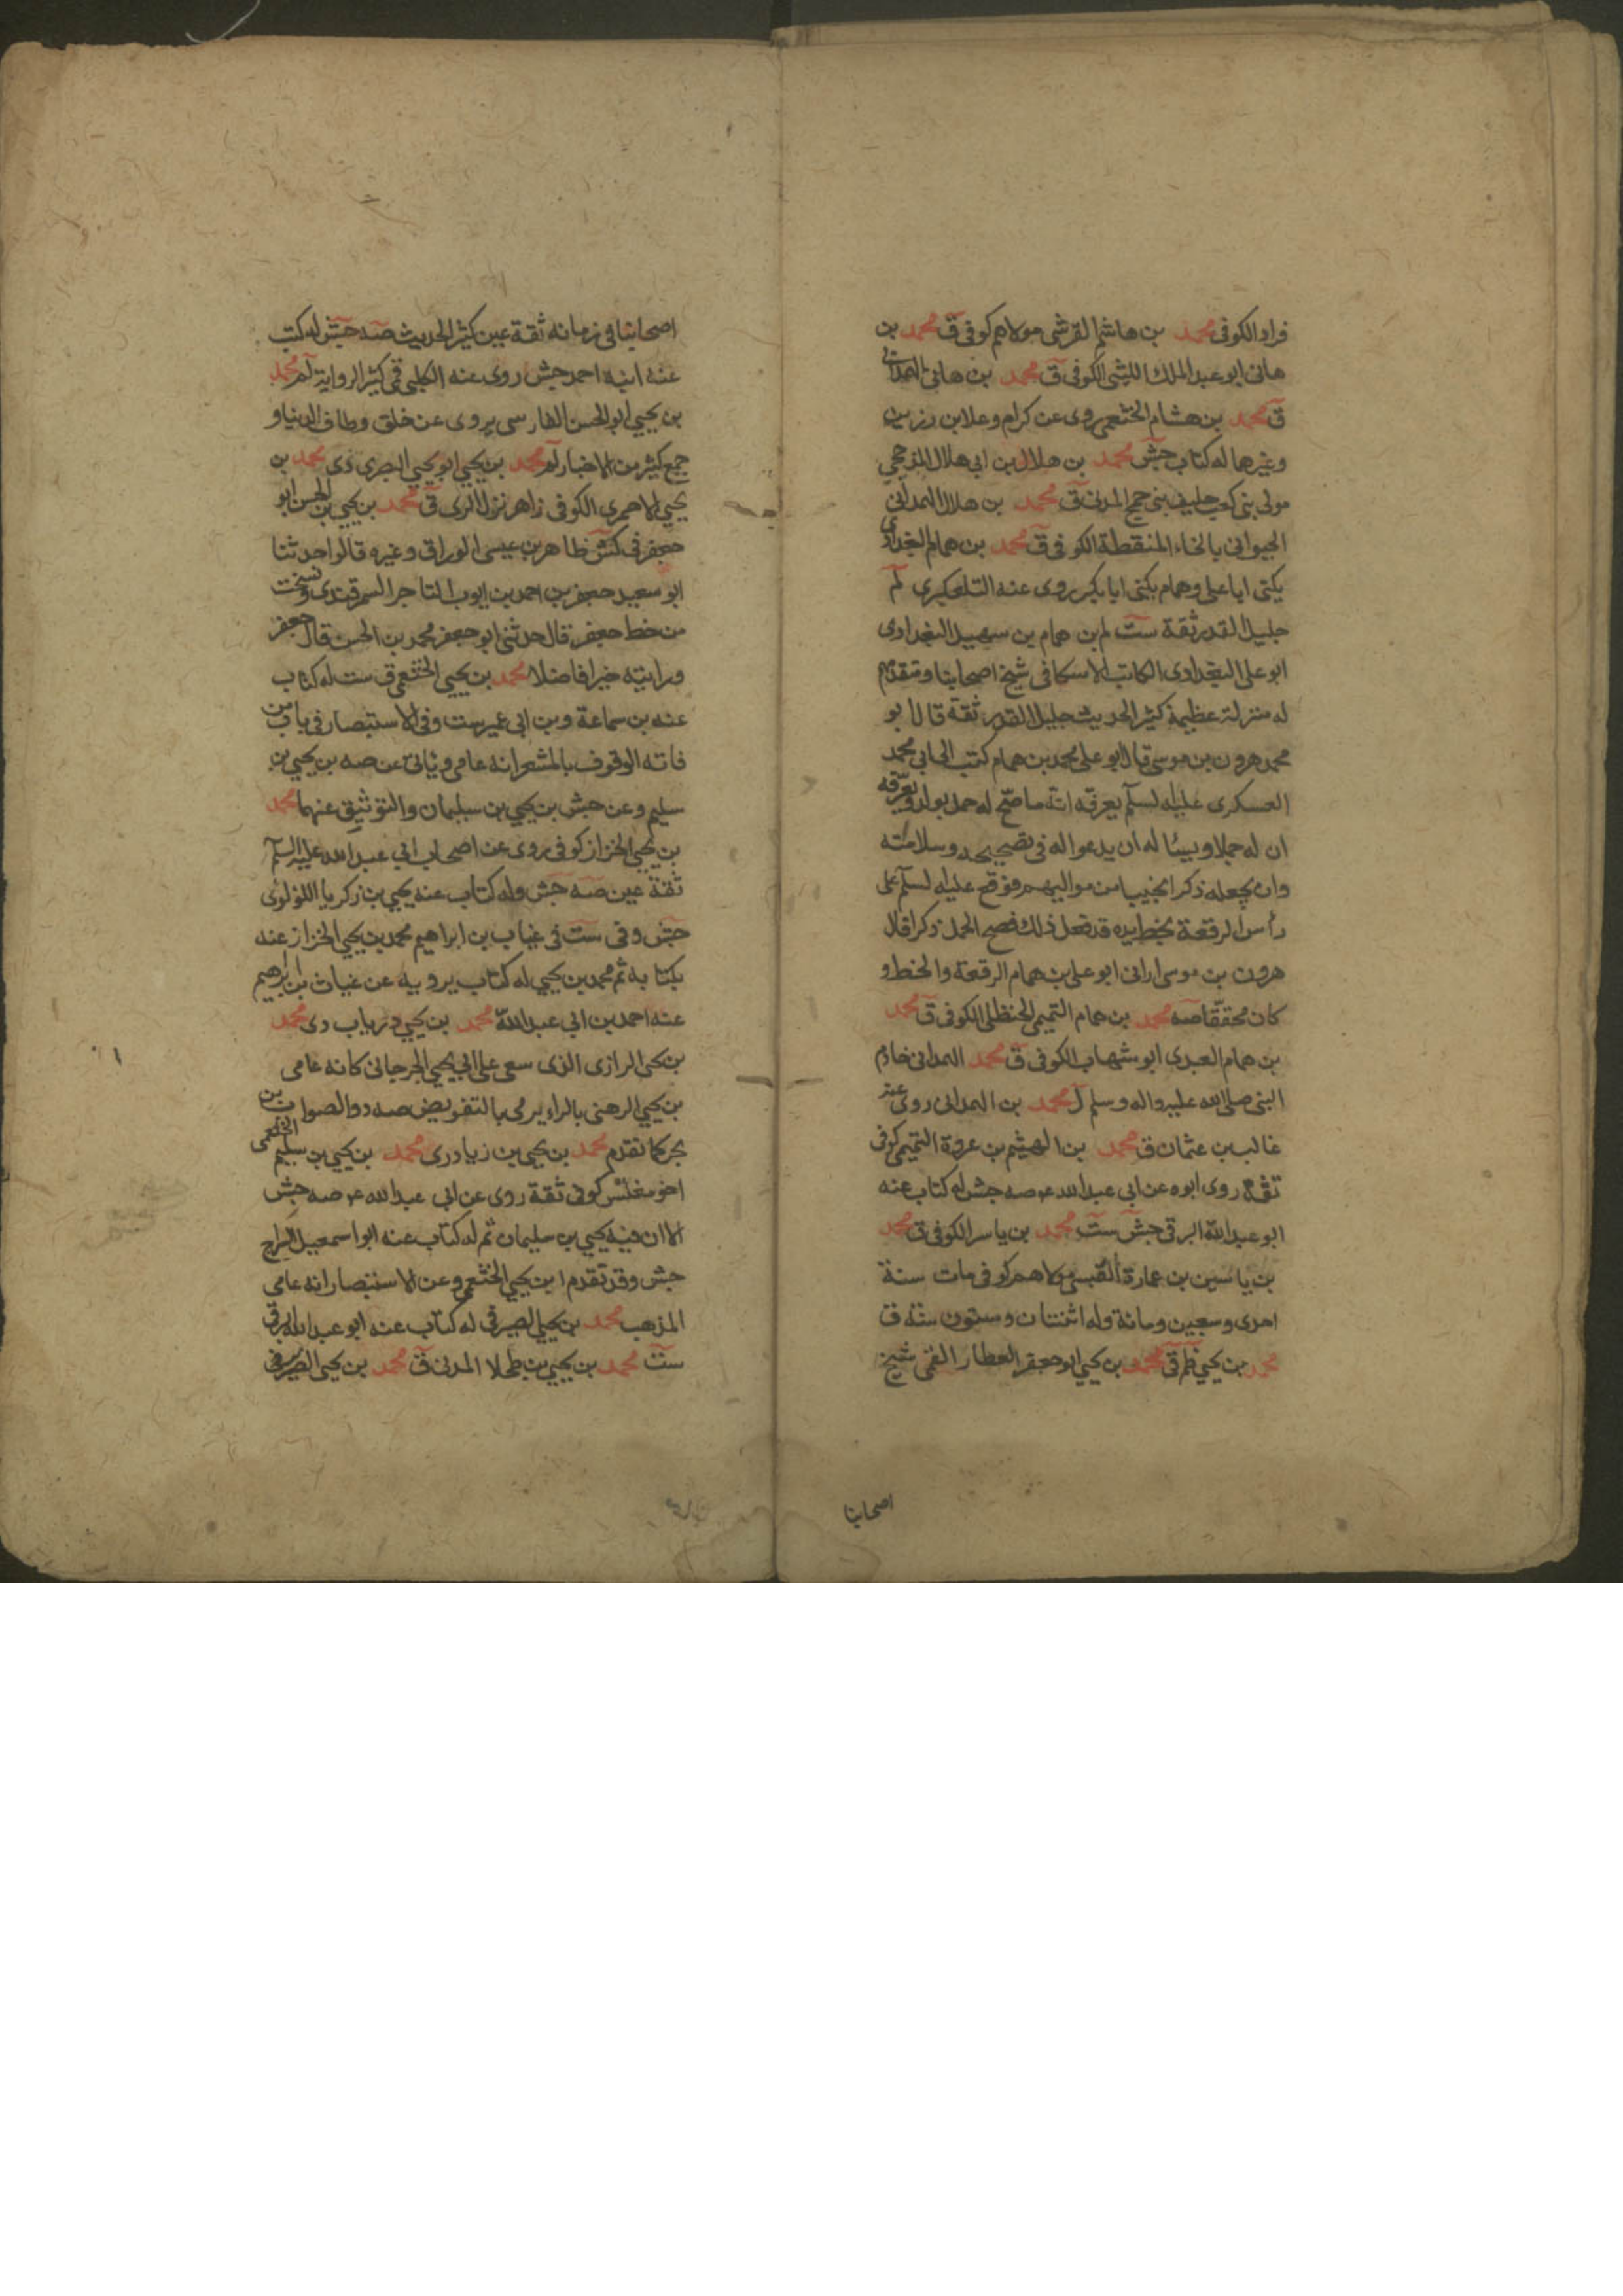 فراد الكوفى محمد بن هاشم القرشى مولاهم كوفى ق محمد بن
هانى ابو عبد الملك الليثى الكوفى ق محمد بن هانى الهمدانى
ق محمد بن هشام الخثعمى روى عن كرام وعلا بن رزين
وغيرهما له كتاب جش محمد بن هلال بن ابى هلال المذحجى
مولى بنى كعب حليف بنى جمح المدنى ق محمد بن هلال الهمدانى
الجيوانى بالخاء المنقطة الكوفى ق محمد بن همام البغدادى
يكنى ابا على وهمام يكنى ابا بكر روى عنه التلعكبرى لم
جليل القدر ثقة ست لم بن همام بن سهيل البغدادى
ابو على البغدادى الكاتب الاسكافى شيخ اصحابنا ومتقدمهم
له منزلة عظيمة كثير الحديث جليل القدر ثقة قال ابو
محمد هرون بن موسى قال ابو على محمد بن همام كتب ابى الى ابى محمد
العسكرى عليه لسلم يعرفه انه ما صح له حمل بولد ويعرفه
ان له حملا ويسئا له ان يدعو اله فى تصحيحه وسلامته
وان يجعله ذكرا نجيبا من مواليهم فوقع عليه لسلم على
رأس الرقعة بخط يده قد فعل ذلك فصح الحمل ذكرا قال
هرون بن موسى ارانى ابو على بن همام الرقعة والخط و
كان محققا صه محمد بن همام التميمى الحنظلى الكوفى ق محمد
بن همام العبدى ابو شهاب الكوفى ق محمد الهمدانى خادم
النبى صلى الله عليه واله وسلم ل محمد بن الهمدانى روى عنه
غالب بن عثمان ق محمد بن الهيثم بن عروة التميمى كوفى
ثقة روى ابوه عن ابى عبد الله ع صه جش له كتاب عنه
ابو عبد الله البرقى جش ست محمد بن ياسر الكوفى ق محمد
بن ياسين بن عمارة القيسى مولاهم كوفى مات سنة
احدى وسبعين ومائة وله اثنتان وستون سنة ق
محمد بن يحيى ظم ق محمد بن يحيى ابو جعفر العطار القمى شيخ
اصحابنا
اصحابنا فى زمانه ثقة عين كثير الحديث صه جش له كتب
عنه ابنه احمد جش روى عنه الكلينى قمى كثير الرواية لم محمد
بن يحيى ابو الحسن الفارسى يروى عن خلق وطاف الدنيا و
جمع كثير من الاخبار لم محمد بن يحيى ابو يحيى البصرى دى محمد بن
يحيى الاحمرى الكوفى زاهر نزل الرى ق محمد بن يحيى بن الحسن ابو
جعفر فى كش طاهر بن عيسى الوراق وغيره قالوا حدثنا
ابو سعيد جعفر بن احمد بن ايوب التاجر السمرقندى ونسخت
من خط جعفر قال حدثنى ابو جعفر محمد بن الحسن قال جعفر
ورايته خيرا فاضلا محمد بن يحيى الخثعمى ق ست له كتاب
عنه بن سماعة وبن ابى عمير ست وفى الاستبصار فى باب من
فاته الوقوف بالمشعر انه عامى وياتى عن صه بن يحيى بن
سليم وعن جش بن يحيى بن سليمان والتوثيق عنهما محمد
بن يحيى الخزاز كوفى روى عن اصحاب ابى عبد الله عليه السلم
ثقة عين صه جش وله كتاب عنه يحيى بن زكريا اللؤلوى
جش وفى ست فى غياب بن ابراهيم محمد بن يحيى الخزاز عنه
بكتابه ثم محمد بن يحيى له كتاب يرويه عن غياث بن ابراهيم
عنه احمد بن ابى عبد الله محمد بن يحيى درياب دى محمد
بن يحى الرازى الذى سعى على ابى يحيى الجرجانى كانه عامى
بن يحيى الرهنى بالراء يرمى بالتفويض صه د والصواب بن
بحر كما تقدم محمد بن يحيى بن زياد رى محمد بن يحيى بن سليم الخثعمى
اخو مغلس كوفى ثقة روى عن ابى عبد الله ع صه جش
الا ان فيه يحيى بن سليمان ثم له كتاب عنه ابو اسمعيل السراج
جش وقد تقدم ابن يحيى الخثعمى وعن الاستبصار انه عامى
المذهب محمد بن يحيى الصيرفى له كتاب عنه ابو عبد الله البرقى
ست محمد بن يحيى بن طحلا المدنى ق محمد بن يحيى الصيرفى